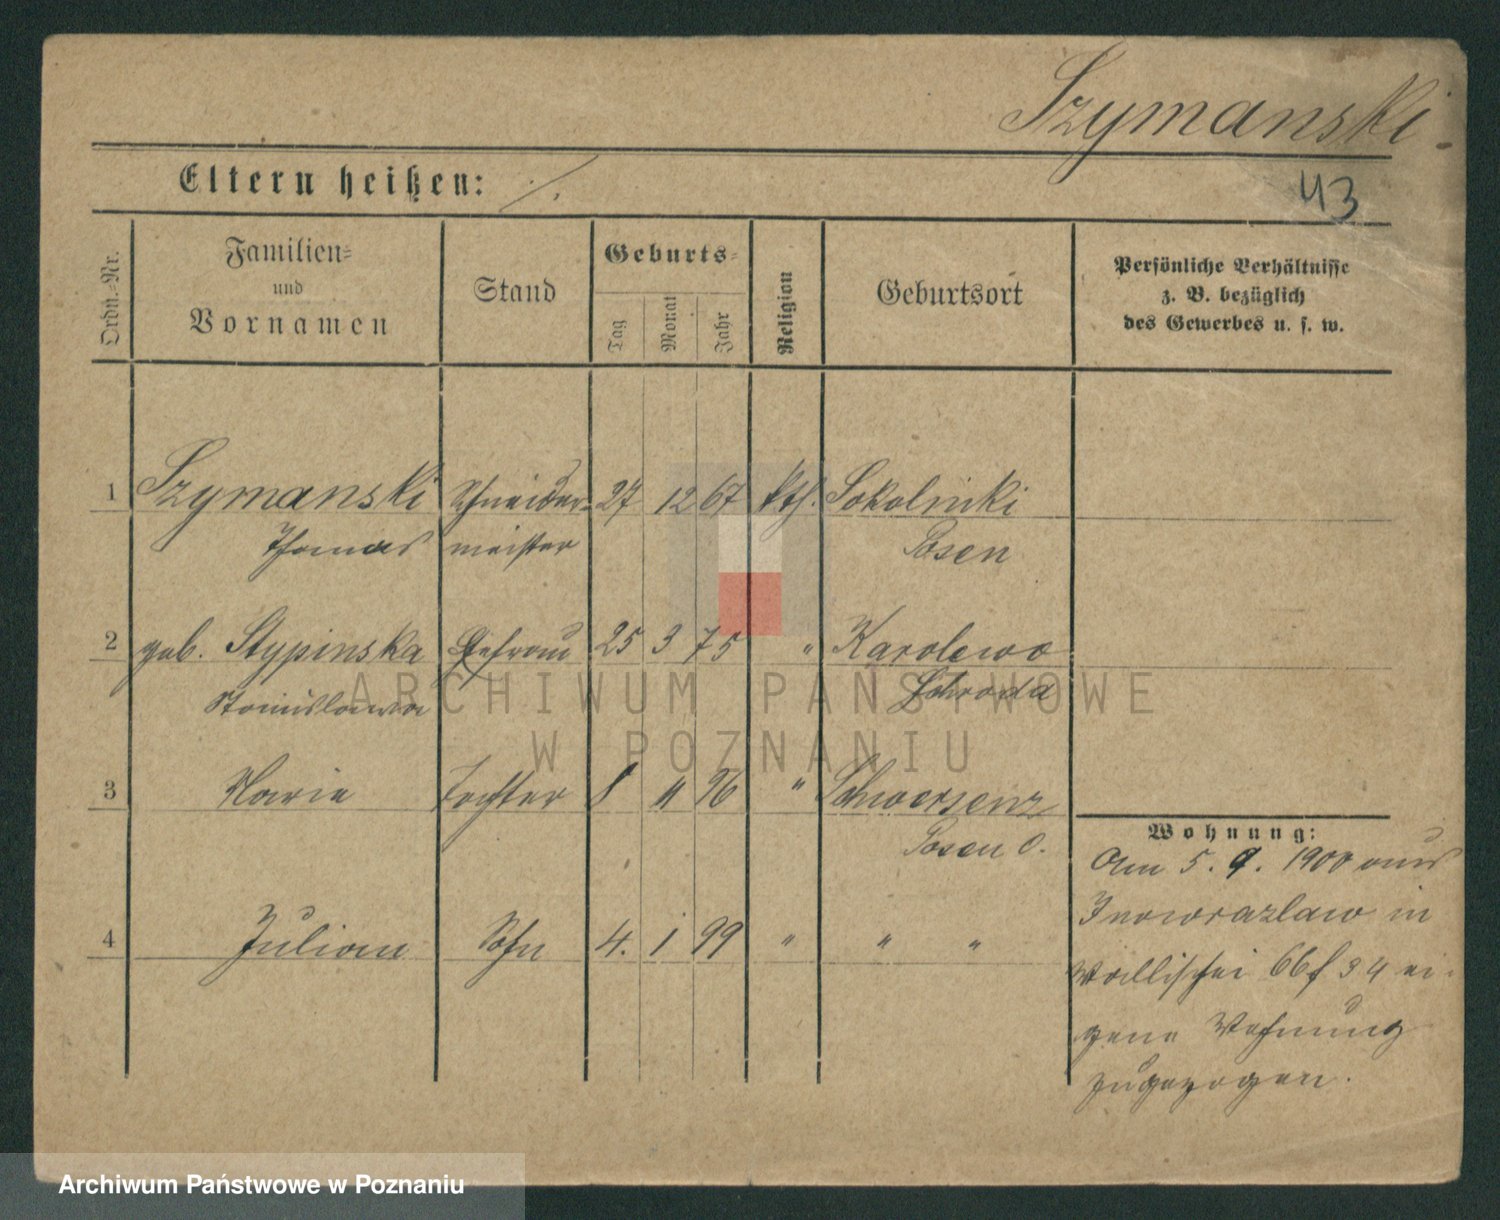 Szymanski.
Eltern heißen: ./.
43
Ordn.-Nr.
Familien=
und
Vornamen
Stand
Geburts=
Tag
Monat
Jahr
Religion
Geburtsort
Persönliche Verhältnisse
z. B. bezüglich
des Gewerbes u. s. w.
1 Szymanski Schneider- 27 12 67 kth. Sokolniki
Thomas meister Posen
2 geb. Stypinska Ehefrau 25 3 75 " Karolewo
Stanislawa Schroda
ARCHIWUM PAŃSTWOWE
W POZNANIU
3 Marie Tochter 8 11 96 " Schwersenz
Posen O.
4 Julian Sohn 4. 1 99 " " "
Wohnung:
Am 5. 9. 1900 aus
Inowrazlaw in
Wallischei 66 34 ei-
gene Wohnung
zugezogen.
Archiwum Państwowe w Poznaniu